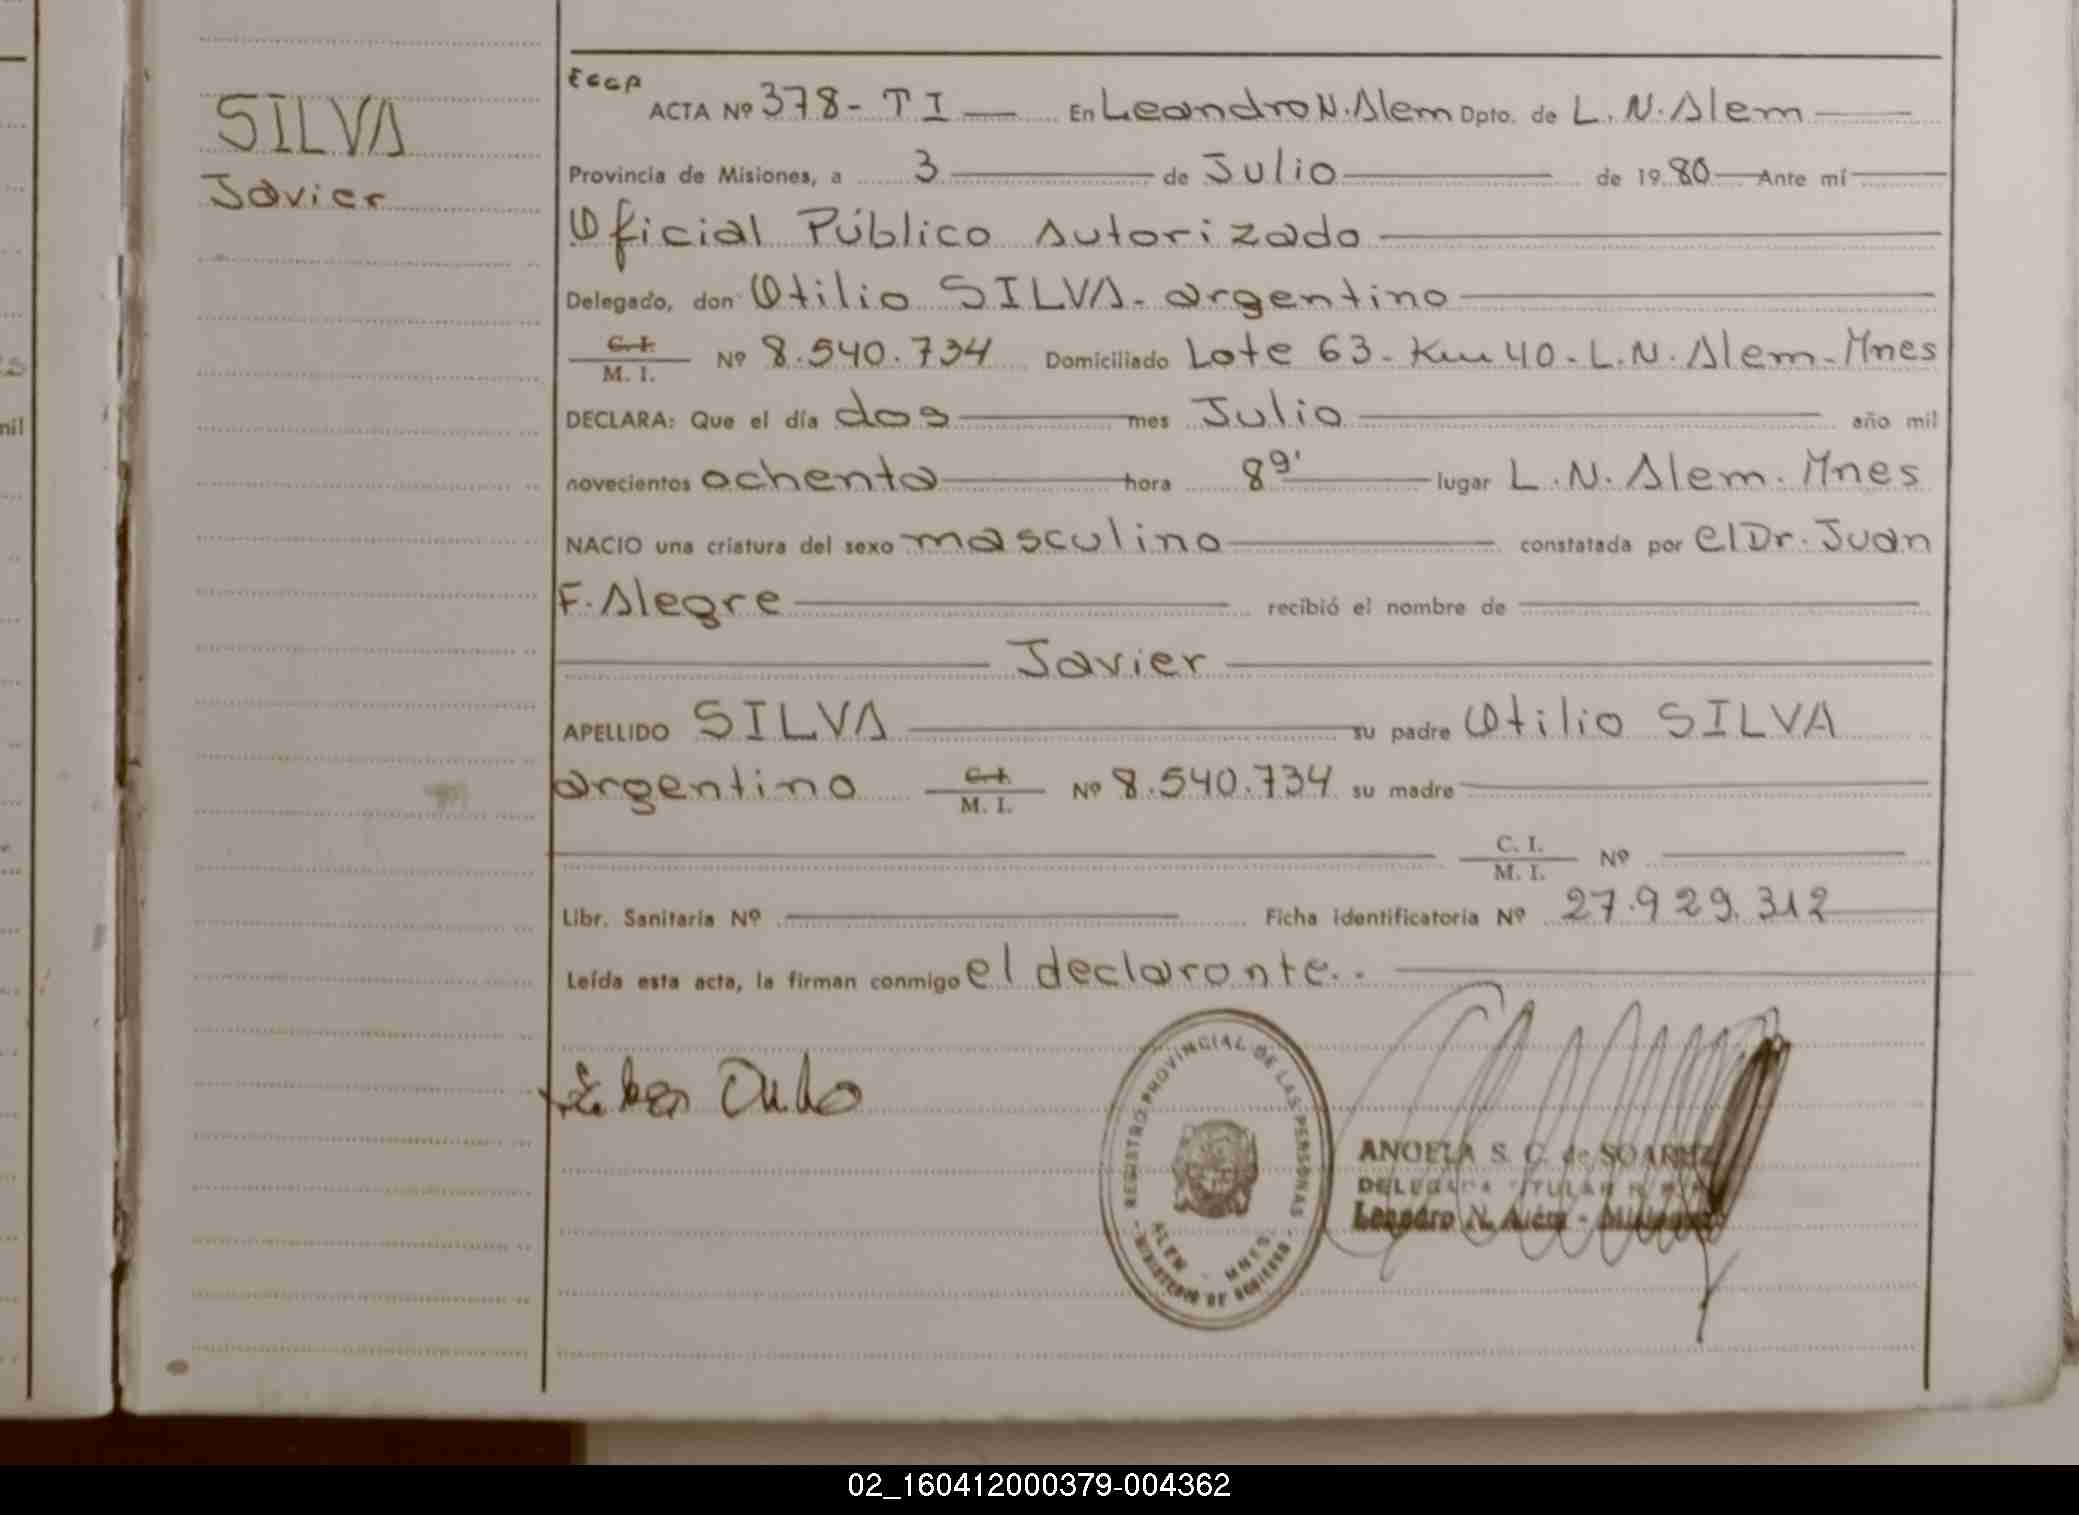 SILVA
Javier
ECCP
ACTA Nº 378- T I — En Leandro N. Alem Dpto. de L. N. Alem
Provincia de Misiones, a 3 de Julio de 1980 Ante mí
Oficial Público Autorizado
Delegado, don Otilio SILVA - argentino
C. I. / M. I. Nº 8.540.734 Domiciliado Lote 63 - Km 40 - L.N. Alem - Mnes
DECLARA: Que el día dos mes Julio año mil
novecientos ochenta hora 8 9' lugar L. N. Alem. Mnes
NACIO una criatura del sexo masculino constatada por el Dr. Juan
F. Alegre recibió el nombre de
Javier
APELLIDO SILVA su padre Otilio SILVA
argentino C. I. / M. I. Nº 8.540.734 su madre
C. I. / M. I. Nº
Libr. Sanitaria Nº Ficha identificatoria Nº 27.929.312
Leída esta acta, la firman conmigo el declarante..
REGISTRO PROVINCIAL DE LAS PERSONAS
ALEM - MNES.
- MINISTERIO DE GOBIERNO -
ANGELA S. C. de SOAREZ
DELEGADA TITULAR
Leandro N. Alem - Misiones
mil
02_160412000379-004362